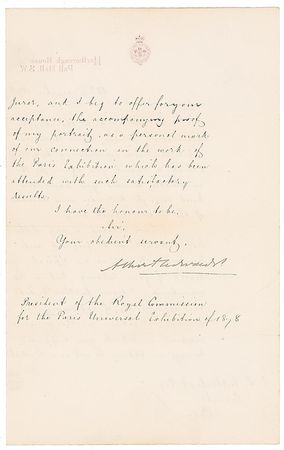 Marlborough House
Pall Mall. S.W.
Juror, and I beg to offer for your
acceptance, the accompanying proof
of my portrait, as a personal mark
of our connection in the work of
the Paris Exhibition which has been
attended with such satisfactory
results.
I have the honour to be,
Sir,
Your obedient servant,
Albert Edward P
President of the Royal Commission
for the Paris Universal Exhibition of 1878